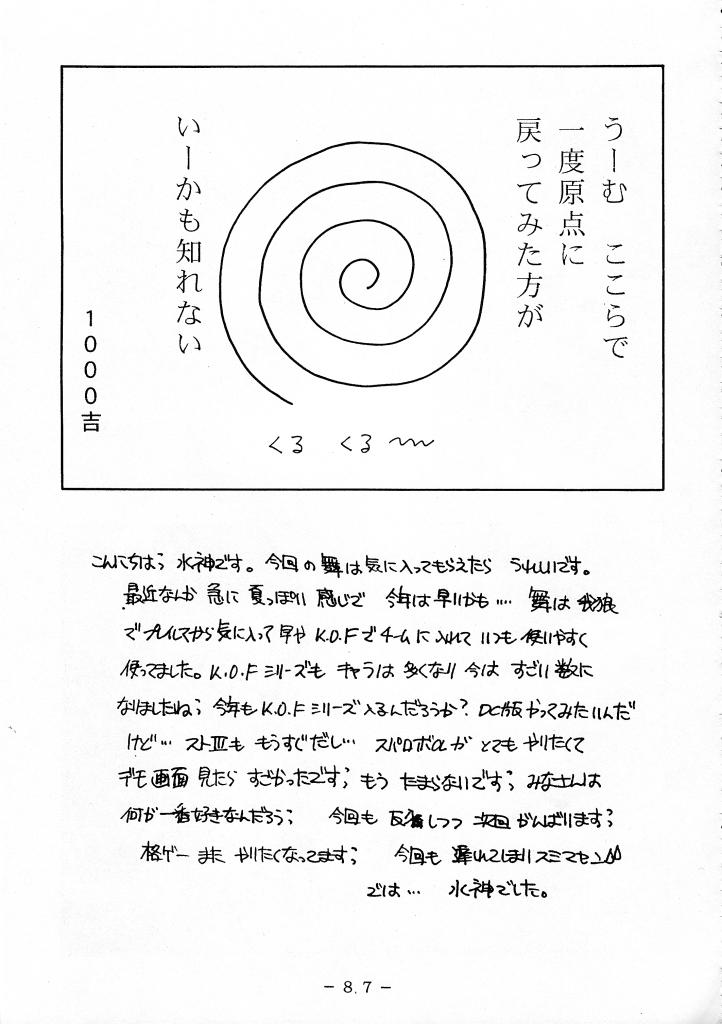 うーむ　ここらで
一度原点に
戻ってみた方が
いーかも知れない
1000吉
くる　くる 〜〜
こんにちはう 水神です。今回の舞は気に入ってもらえたら うれしいです。
最近なんか 急に 夏っぽい 感じで 今年は 早いかも…. 舞は 餓狼
でプレイしてから気に入って 早や K.O.Fでチームに入れて いつも 使いやすく
使ってました。K.O.Fシリーズも キャラは 多くなり 今は すごい 数に
なりましたね; 今年もK.O.Fシリーズ入るんだろうか? DC版やってみたいんだ
けど… ストⅢも もうすぐだし… スパロボαが とても やりたくて
デモ画面 見たら すごかったです; もう たまらないです; みなさんは
何が一番好きなんだろう; 今回も 反省しつつ 次回 がんばります;
格ゲー また やりたくなってます; 今回も 遅れてしまい スミマセン
では… 水神でした。
- 8.7 -